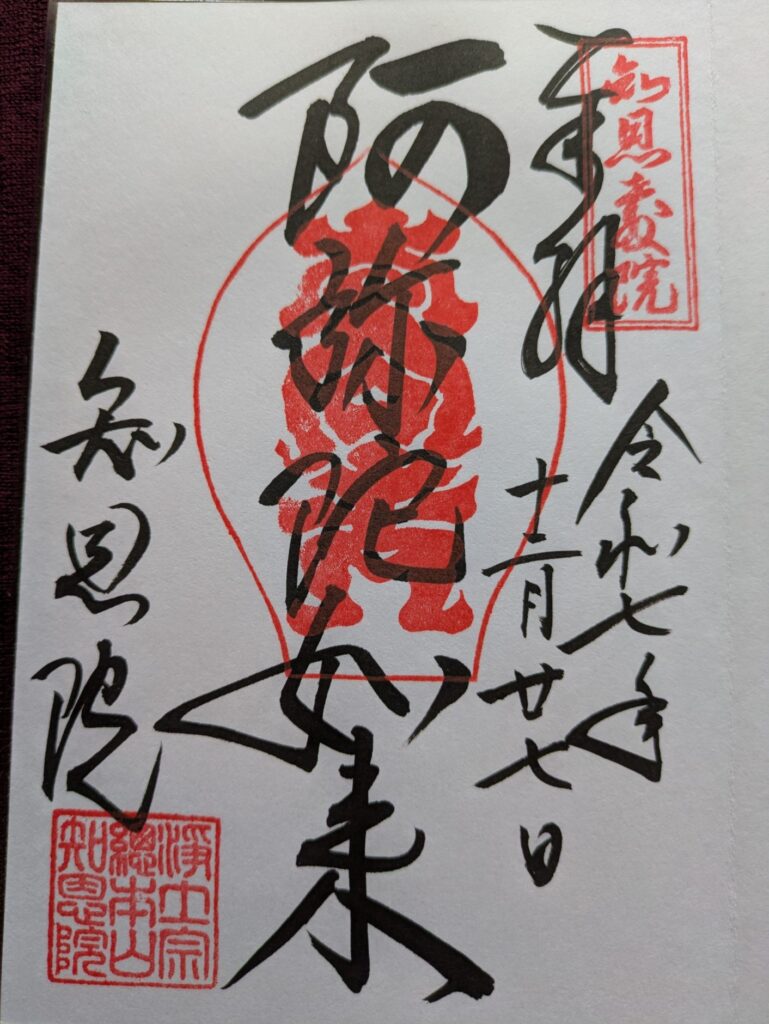 奉拝
知恩教院
令和七年
十二月廿七日
阿弥陀如来
知恩院
浄土宗
總本山
知恩院